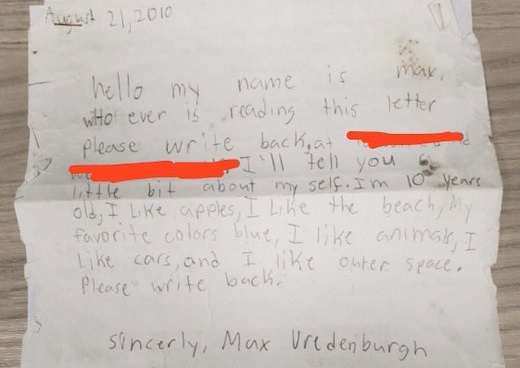 August 21, 2010
hello my name is max,
who ever is reading this letter
please write back, at
I'll tell you a
little bit about my self. I'm 10 years
old, I Like apples, I Like the beach, My
favorite colors blue, I like animals, I
Like cars, and I like outer space.
Please write back.
sincerly, Max Vredenburgh